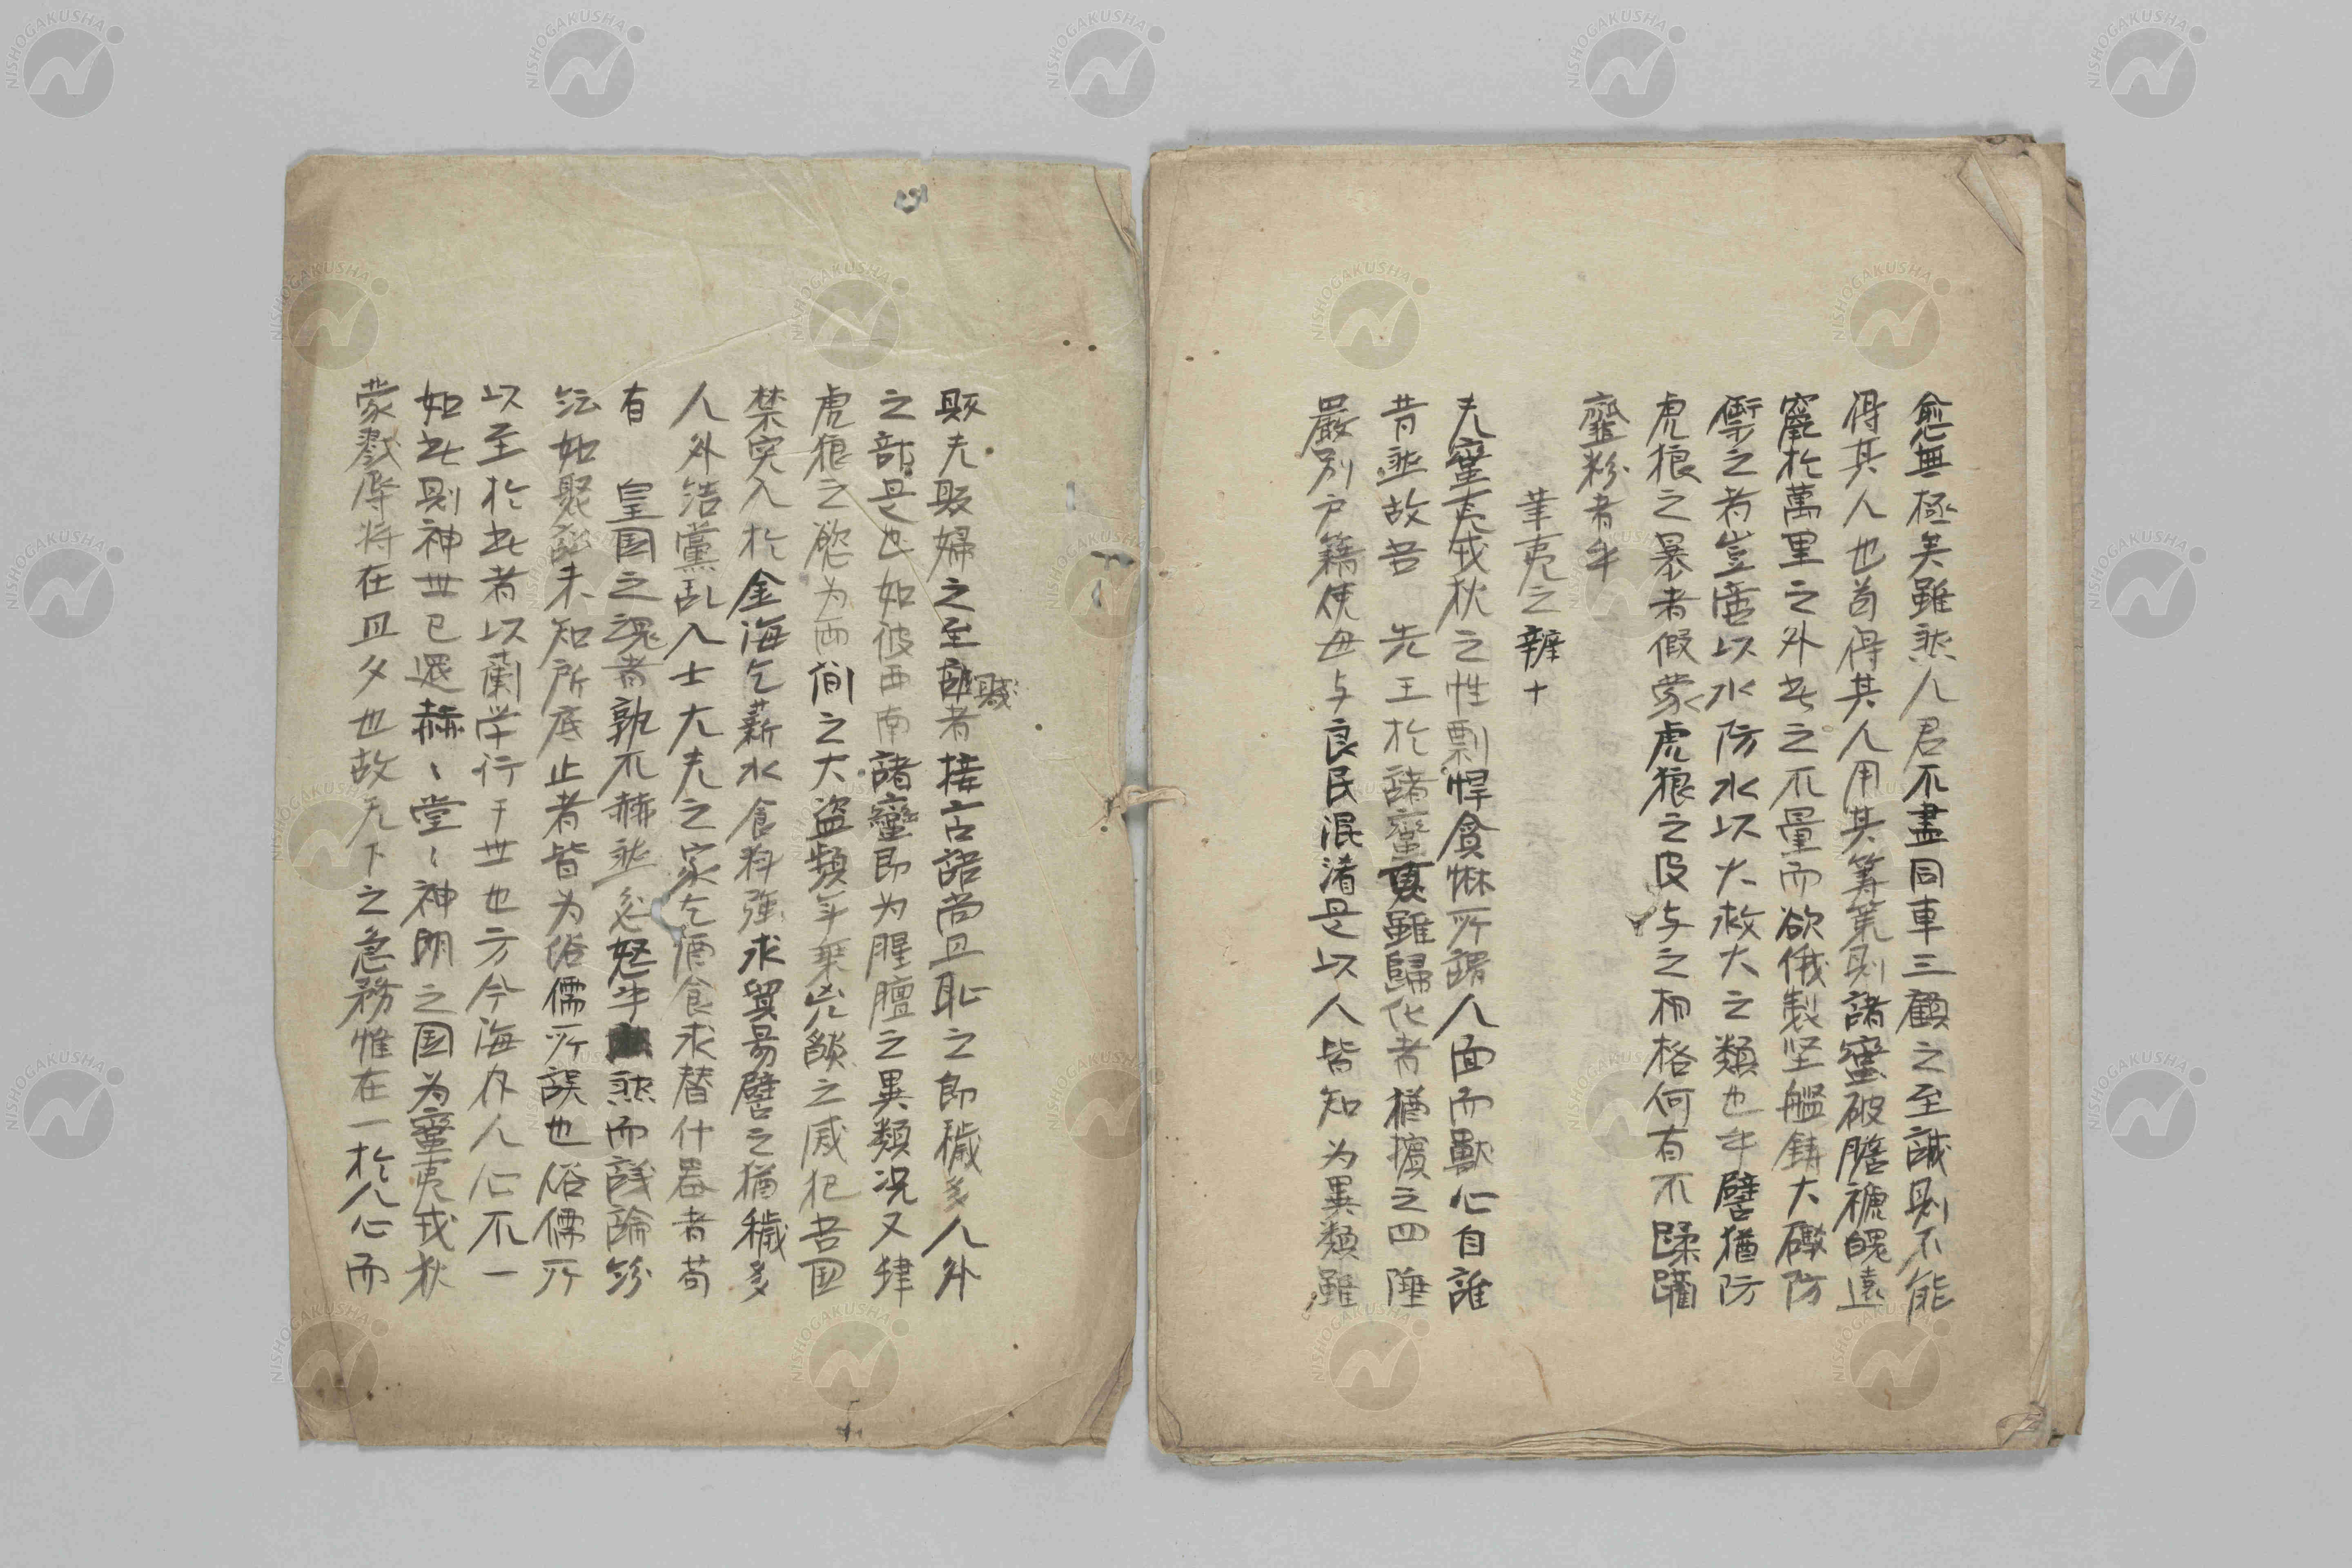 愈無極矣雖然人君不盡同車三顧之至誠則不能
得其人也苟得其人用其籌策則諸蛮破膽褫魄遠
竄於萬里之外此之不量而欲俄製坚艦鋳大礮防
禦之者豈啻以水防水以火救火之類也乎譬猶防
虎狼之暴者假蒙虎狼之皮与之相格何有不蹂躪
虀粉者乎
華夷之辨十
夫蛮夷戎狄之性剽悍貪惏所謂人面而獣心自誰
昔然故吾 先王於諸蛮夷雖歸化者猶擯之四陲
嚴別戸籍使毋与良民混淆是以人皆知为異類雖
販夫販婦之至賤者接言語尚且恥之即穢多人外
之部是也如彼西南諸蠻即为腥膻之異類况又肆
虎狼之慾为両間之大盗頻年乗兇燄之威犯吾国
禁突入於金海乞薪水食料強求貿易譬之猶穢多
人外結黨乱入士大夫之家乞酒食求替什器者苟
有 皇国之魂者孰不赫然忿怒乎然而議論紛
紜如聚訟未知所底止者皆为俗儒所誤也俗儒所
以至於此者以蘭学行于世也方今海内人心不一
如此則神世已還赫〻堂〻神明之国为蛮夷戎狄
蒙戮辱将在旦夕也故天下之急務惟在一於人心而
NISHOGAKUSHA